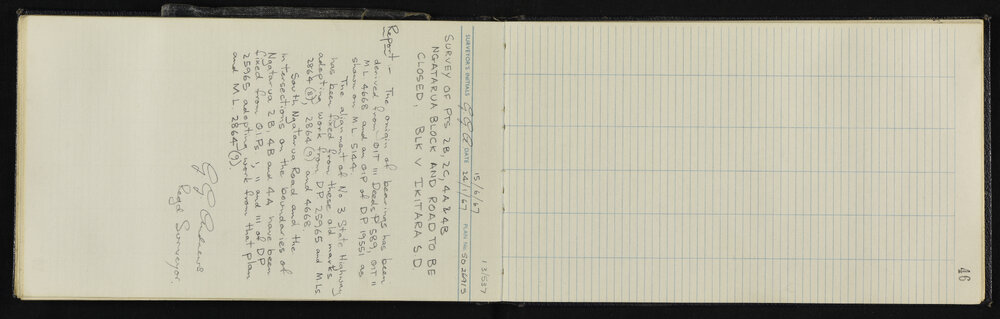 13/537
15/6/67
SURVEYOR'S INITIALS G G A DATE 24/1/67 PLAN No. SO 26973
SURVEY OF PTS 2B, 2C, 4A & 4B
NGATARUA BLOCK AND ROAD TO BE
CLOSED, BLK V IKITARA S D
Report:- The origin of bearings has been
derived from OIT III Deeds P 589, OIT II
M L 4668 and an OIP of D P 19551 as
shown on M L 5144.
The alignment of No 3 State Highway
has been fixed from these old marks
adopting work from DP 25965 and M Ls
2864(8), 2864(9) and 4668.
South Ngatarua Road and the
intersections on the boundaries of
Ngatarua 2B, 4B and 4A have been
fixed from OIPs I, II and III of DP
25965 adopting work from that plan
and M L 2864(9).
G G Andrews
Regd Surveyor.
46